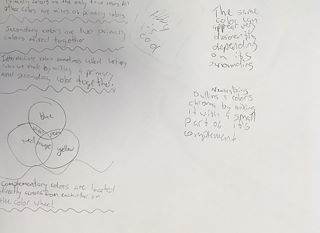 Primary colors are the only true colors. All
other colors are mixes of primary colors.
Secondary colors are two primary
colors mixed together
Intermediate color sometimes called tertiary
are made by mixing a primary
and secondary color together.
blue
red
orange
yellow
Complementary colors are located
directly across from each other on
the color wheel
The same
color can
appear very
differently
depending
on its
surrounding
Neutralizing
Dulling a colors
chroma by mixing
it with a small
part of it's
complement